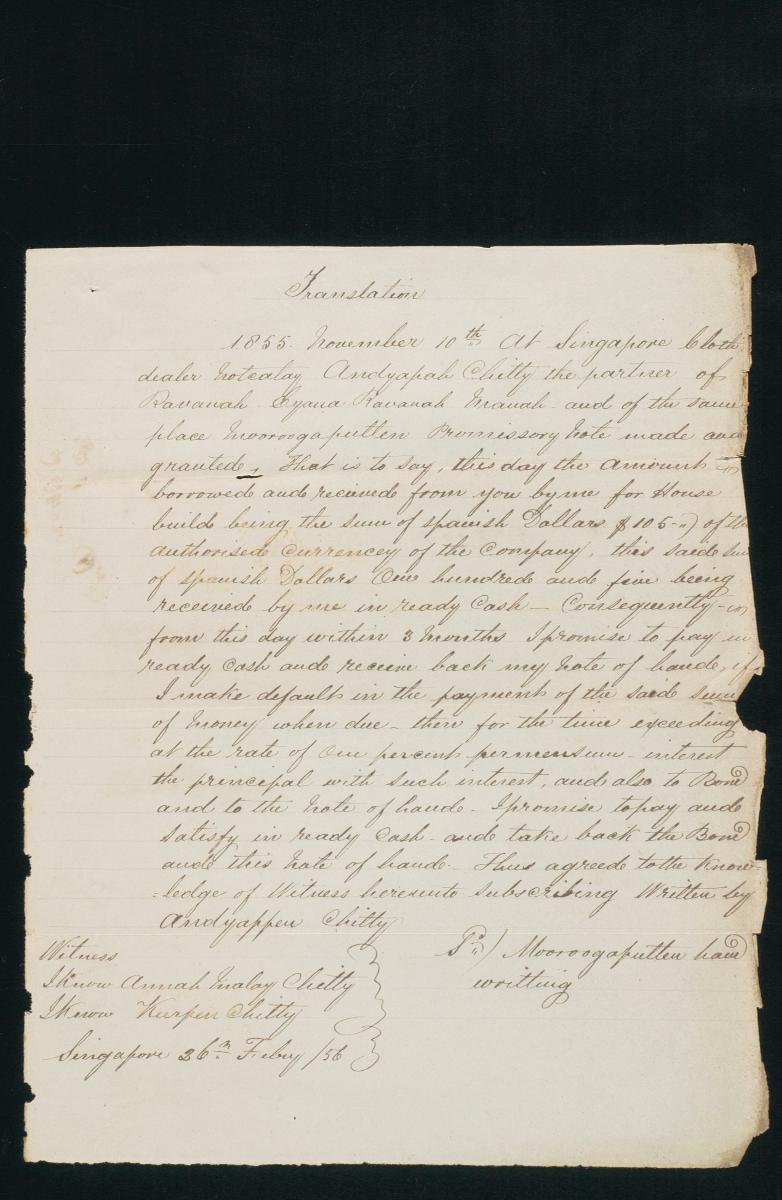 Translation
1855. November 10th At Singapore Cloth
dealer Notealay Andyapah Chitty the partner of
Ravanah Eyana Ravanah Manah and of the same
place Mooroogaputten Promissory Note made and
grantede, That is to say, this day the amount
borrowede ande received from you by me for House
build being the sum of spanish Dollars $105-") of the
authorised Currencey of the Company, this saide
of spanish Dollars One hundrede ande five being
received by me in ready Cash - Consequently -
from this day within 3 Months I promise to pay in
ready Cash ande receive back my Note of hande, if
I make default in the payment of the saide sum
of Money when due - then for the time exceeding
at the rate of One percent permensum - interest
the principal with such interest, and also to Bond
and to the Note of hande - I promise to pay ande
satisfy in ready Cash - ande take back the Bond
ande this Note of hande. - Thus agreede to the Know=
=ledge of Witness hereunto subscribing Written by
Andyappen Chitty
Witness
I Know Annah Malay Chitty
I Know Kurpen Chitty
Singapore 26th Feby /56
Mooroogaputten hand
writting